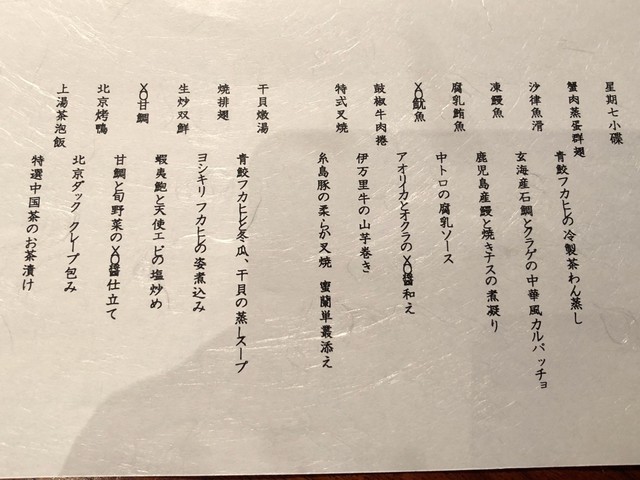 星期七小碟
蟹肉蒸蛋群翅
青鮫フカヒレの冷製茶わん蒸し
沙律魚滑
玄海産石鯛とクラゲの中華風カルパッチョ
凍鰻魚
鹿児島産鰻と焼きナスの煮凝り
腐乳鮪魚
中トロの腐乳ソース
XO魷魚
アオリイカとオクラのXO醤和え
豉椒牛肉捲
伊万里牛の山芋巻き
特式叉焼
糸島豚の柔らか叉焼 蜜蘭単叢添え
干貝燉湯
青鮫フカヒレと冬瓜、干貝の蒸しスープ
焼排翅
ヨシキリ フカヒレの姿煮込み
生炒双鮮
蝦夷鮑と天使エビの塩炒め
XO甘鯛
甘鯛と旬野菜のXO醤仕立て
北京烤鴨
北京ダック クレープ包み
上湯茶泡飯
特選中国茶のお茶漬け